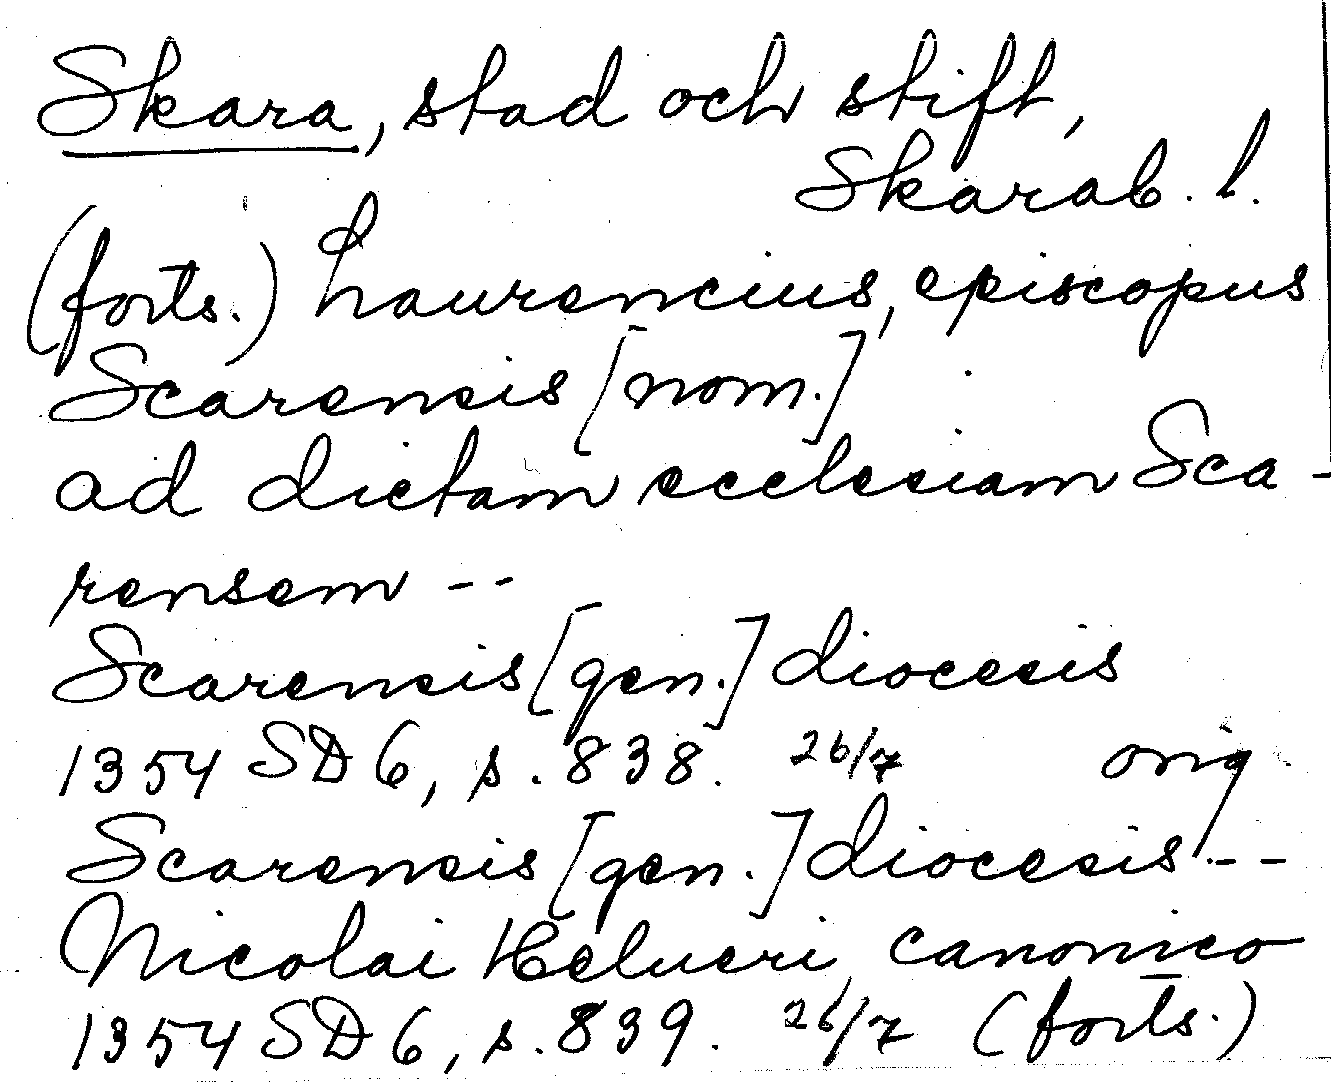 Skara, stad och stift,
Skarab. l.
(forts.) Laurencius, episcopus
Scarensis [nom.]
ad dictam ecclesiam Sca-
rensem --
Scarensis [gen.] diocesis
1354 SD 6, s. 838. 26/7 orig
Scarensis [gen.] diocesis --
Nicolai Helueri canonico
1354 SD 6, s. 839. 26/7 (forts.)